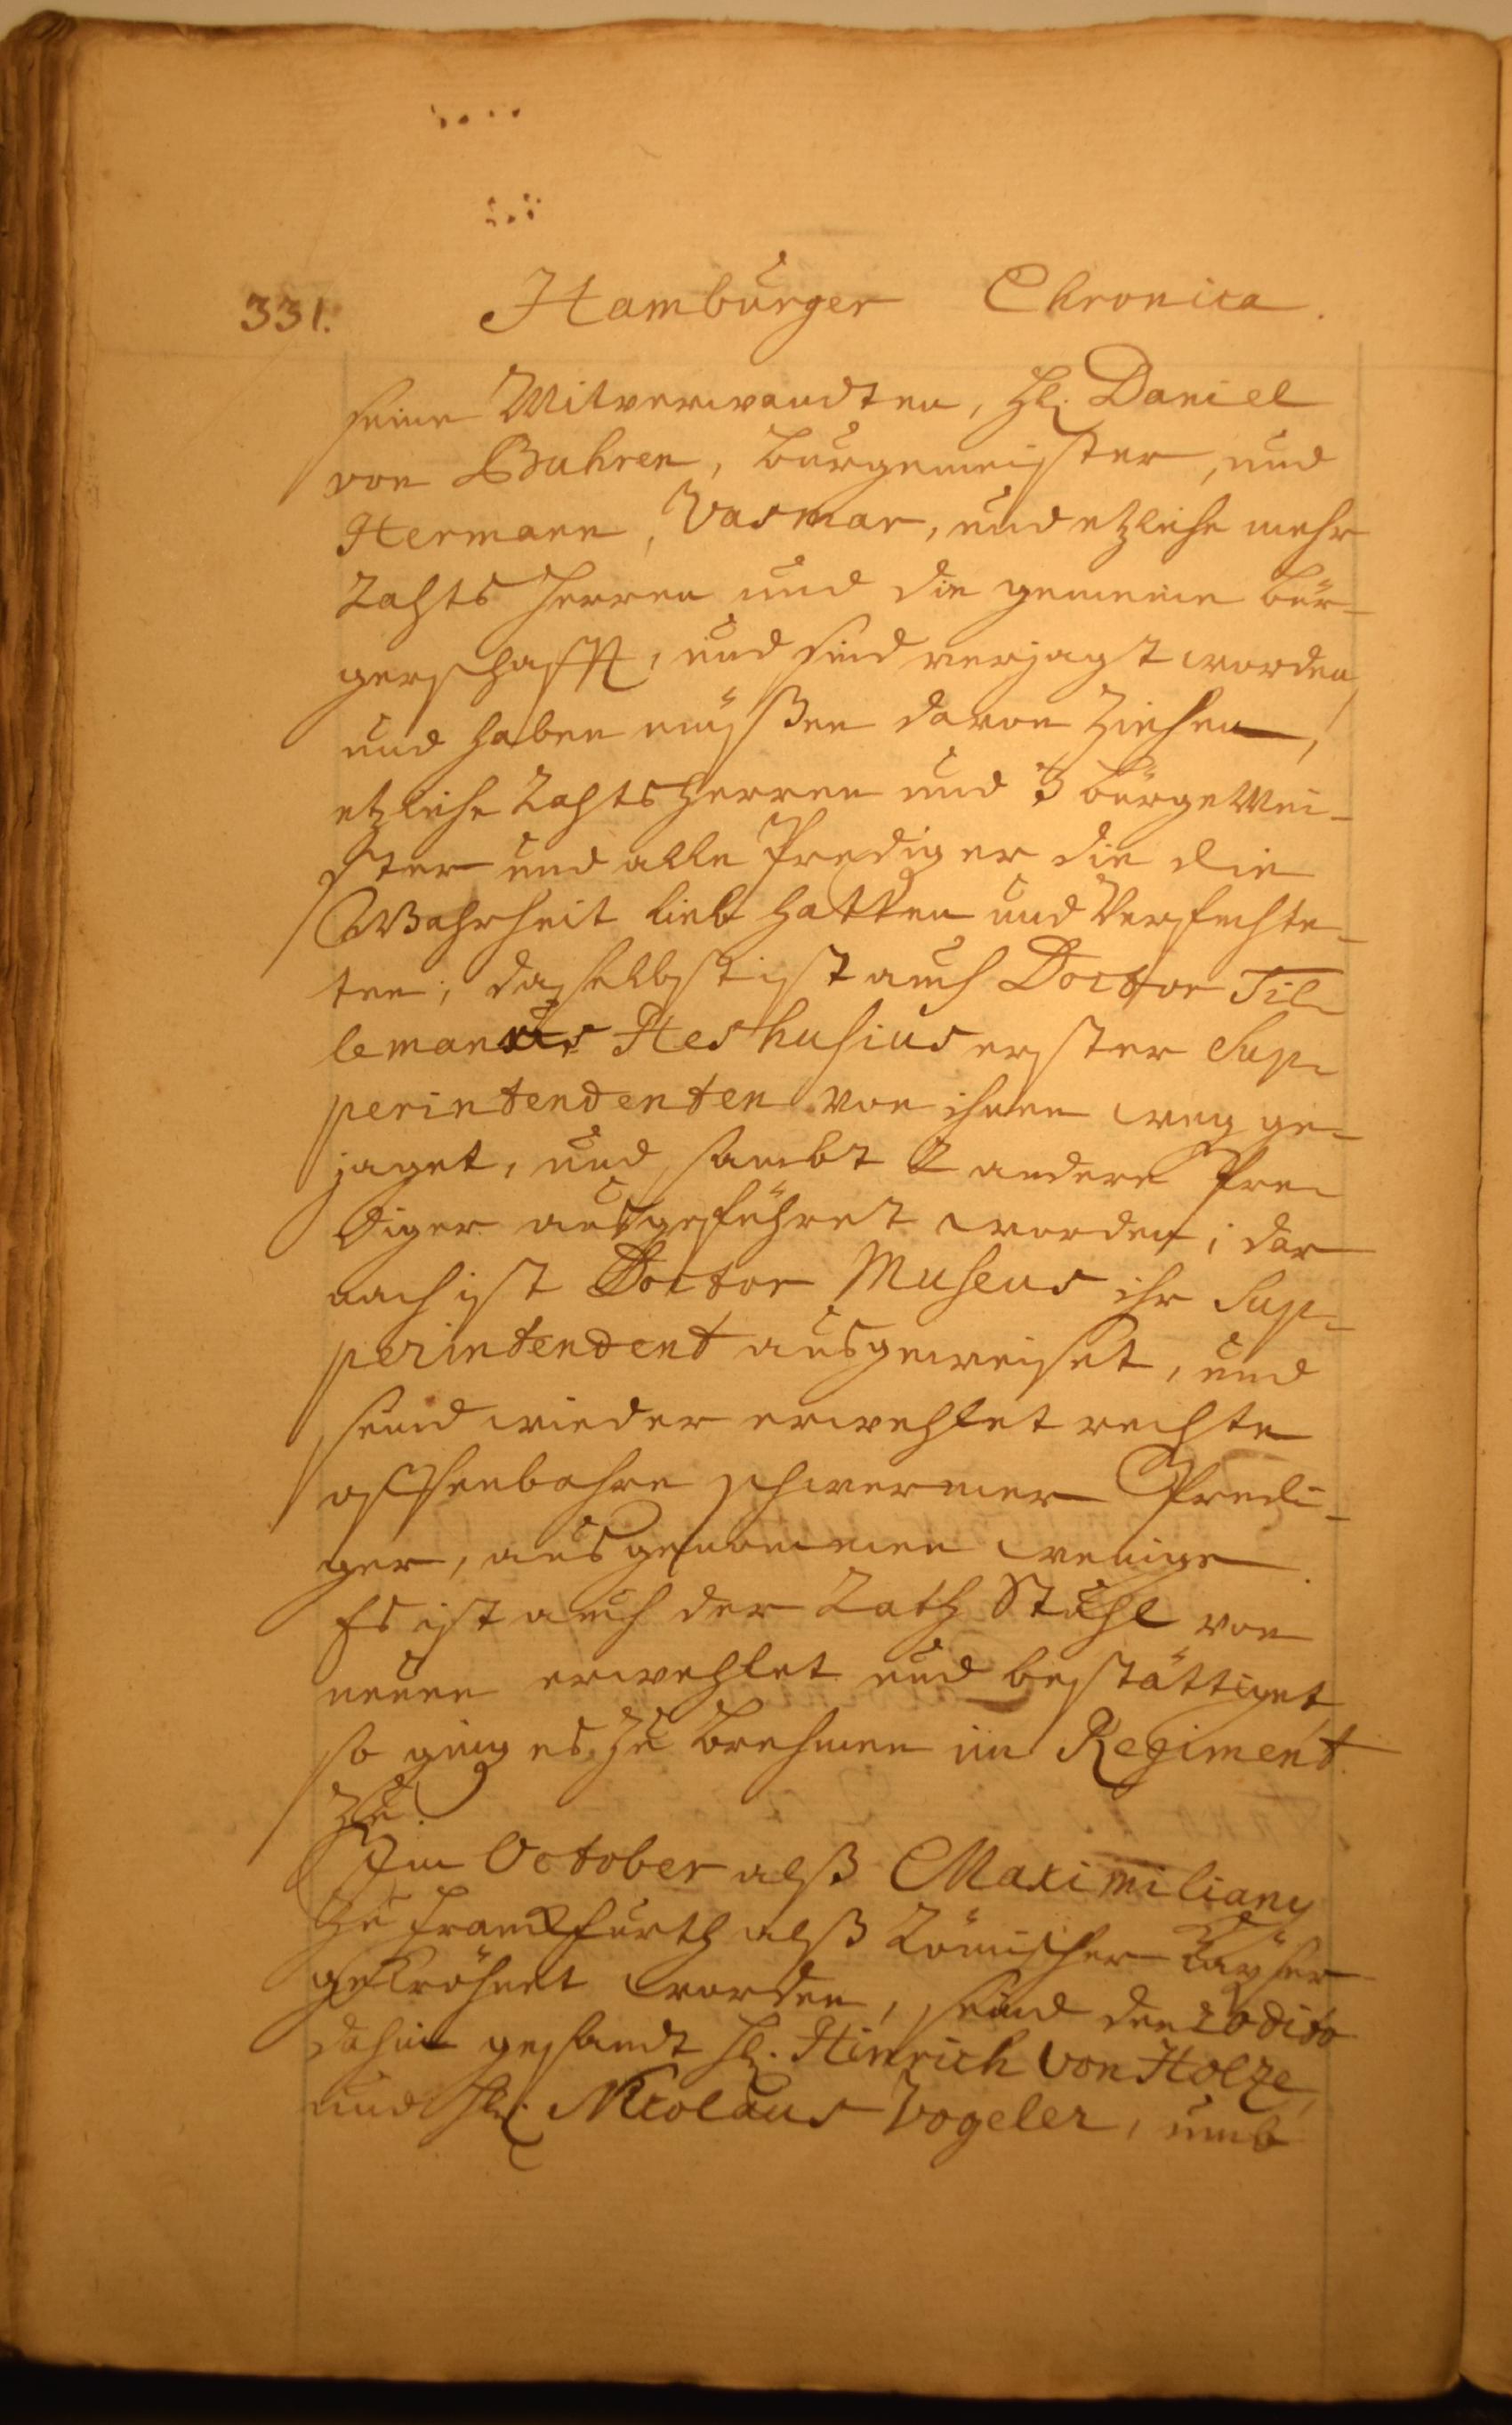 331. Hamburger Chronica.
seine Mitverwandten, Hl: Daniel
von Buhren, burgemeister, und
Hermann, Vasmar, und etzliche mehr
Rahts Herren und die gemeine bür-
gerschafft, und sind verjagt worden,
und haben müßen davon ziehen,
etzliche Rahtsherren und 3 bürgemei-
ster und alle Prediger die die
Wahrheit lieb hatten und Verfechte-
ten; daselbst ist auch Doctor Til-
lemannus Heshusius erster Sup-
perintendenten von ihnen weg ge-
jaget, und sambt 2 andere Pre-
diger ausgeführet worden; dar
nach ist Doctor Museus ihr Sup-
perintendent ausgeweiset, und
seind wieder erwehlet rechte
offenbahre schwermer Predi-
ger, ausgenommen wenige.
Es ist auch der Rath Stuhl von
neuen erwehlet und bestättiget
so ging es zu Brehmen im Regiment
zu.
Im October alß Maximilianus
zu Franckfurth alß Römischer Kayser
gekröhnet worden, seind den 20 dito
dahin gesandt Hl. Hinrich von Holze,
und Hl: Nicolaus Vogeler, umb